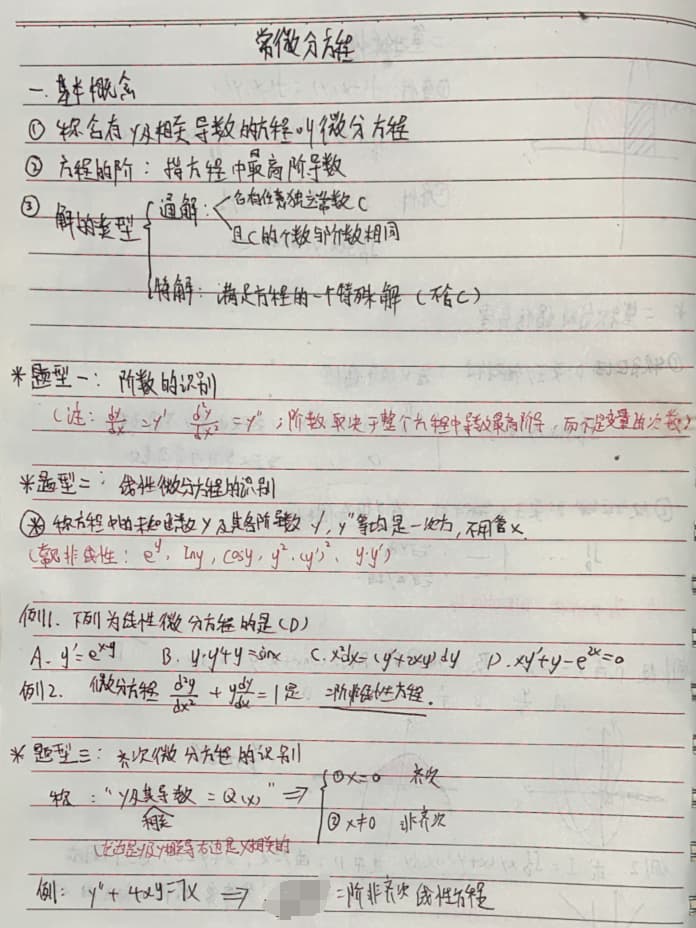 常微分方程
一.基本概念
① 称含有y及相关导数的方程叫微分方程
② 方程的阶：指方程中最高阶导数
③ 解的类型 { 通解：< 含有任意独立常数C
且C的个数与阶数相同
特解：满足方程的一个特殊解（不含C）
*题型一：阶数的识别
（注：dy/dx = y' d²y/dx² = y''；阶数取决于整个方程中导数最高阶导，而不是变量的次数）
*题型二：线性微分方程的识别
※ 称方程中的未知函数y及其各阶导数y', y''等均是一次方，不用管x.
（常见非线性：e^y, lny, cosy, y², (y')², y·y'）
例1. 下列为线性微分方程的是(D)
A. y'=e^(x-y) B. y·y'+y=sinx C. x²dx=(y'+2xy)dy D. xy'+y-e^(2x)=0
例2. 微分方程 d²y/dx² + y dy/dx = 1是 二阶非线性方程.
*题型三：齐次微分方程的识别
称："y及其导数=Q(x)" ⇒ { ①x=0 齐次
相关 ②x≠0 非齐次
（左边是y及y相关导右边是x相关的
例：y''+4xy=7x ⇒ 二阶非齐次线性方程